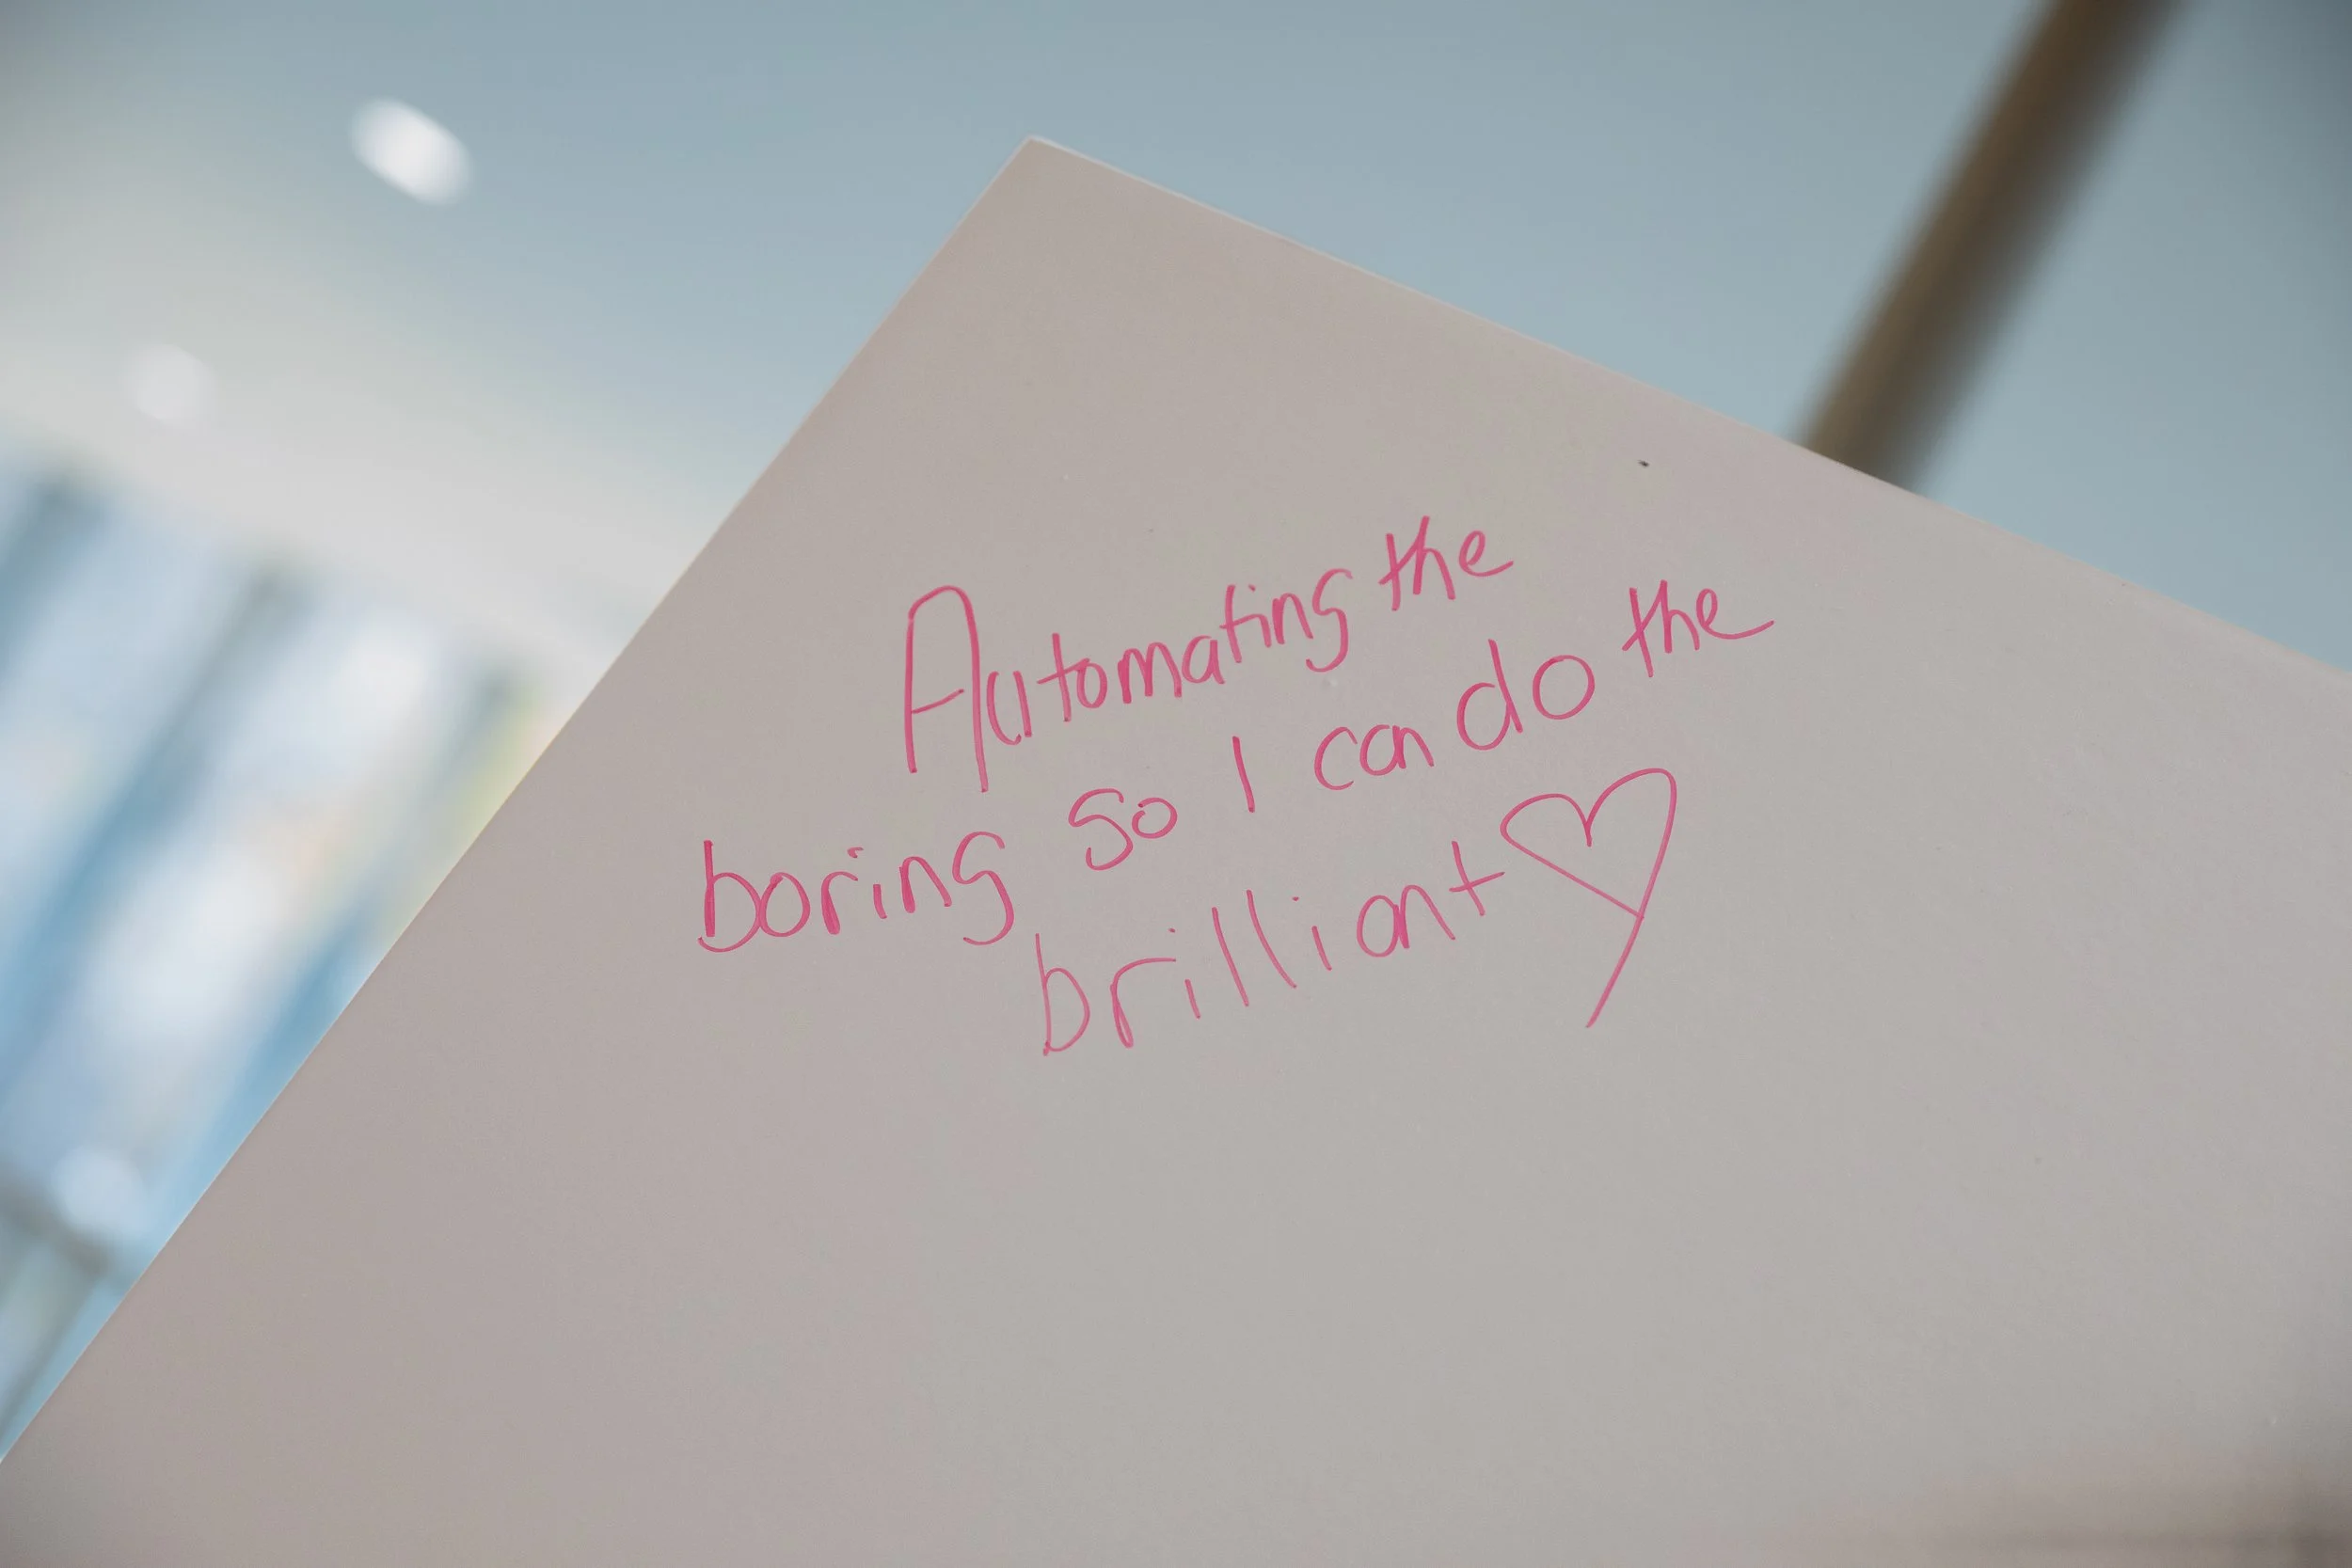 Automating the
boring so I can do the
brilliant